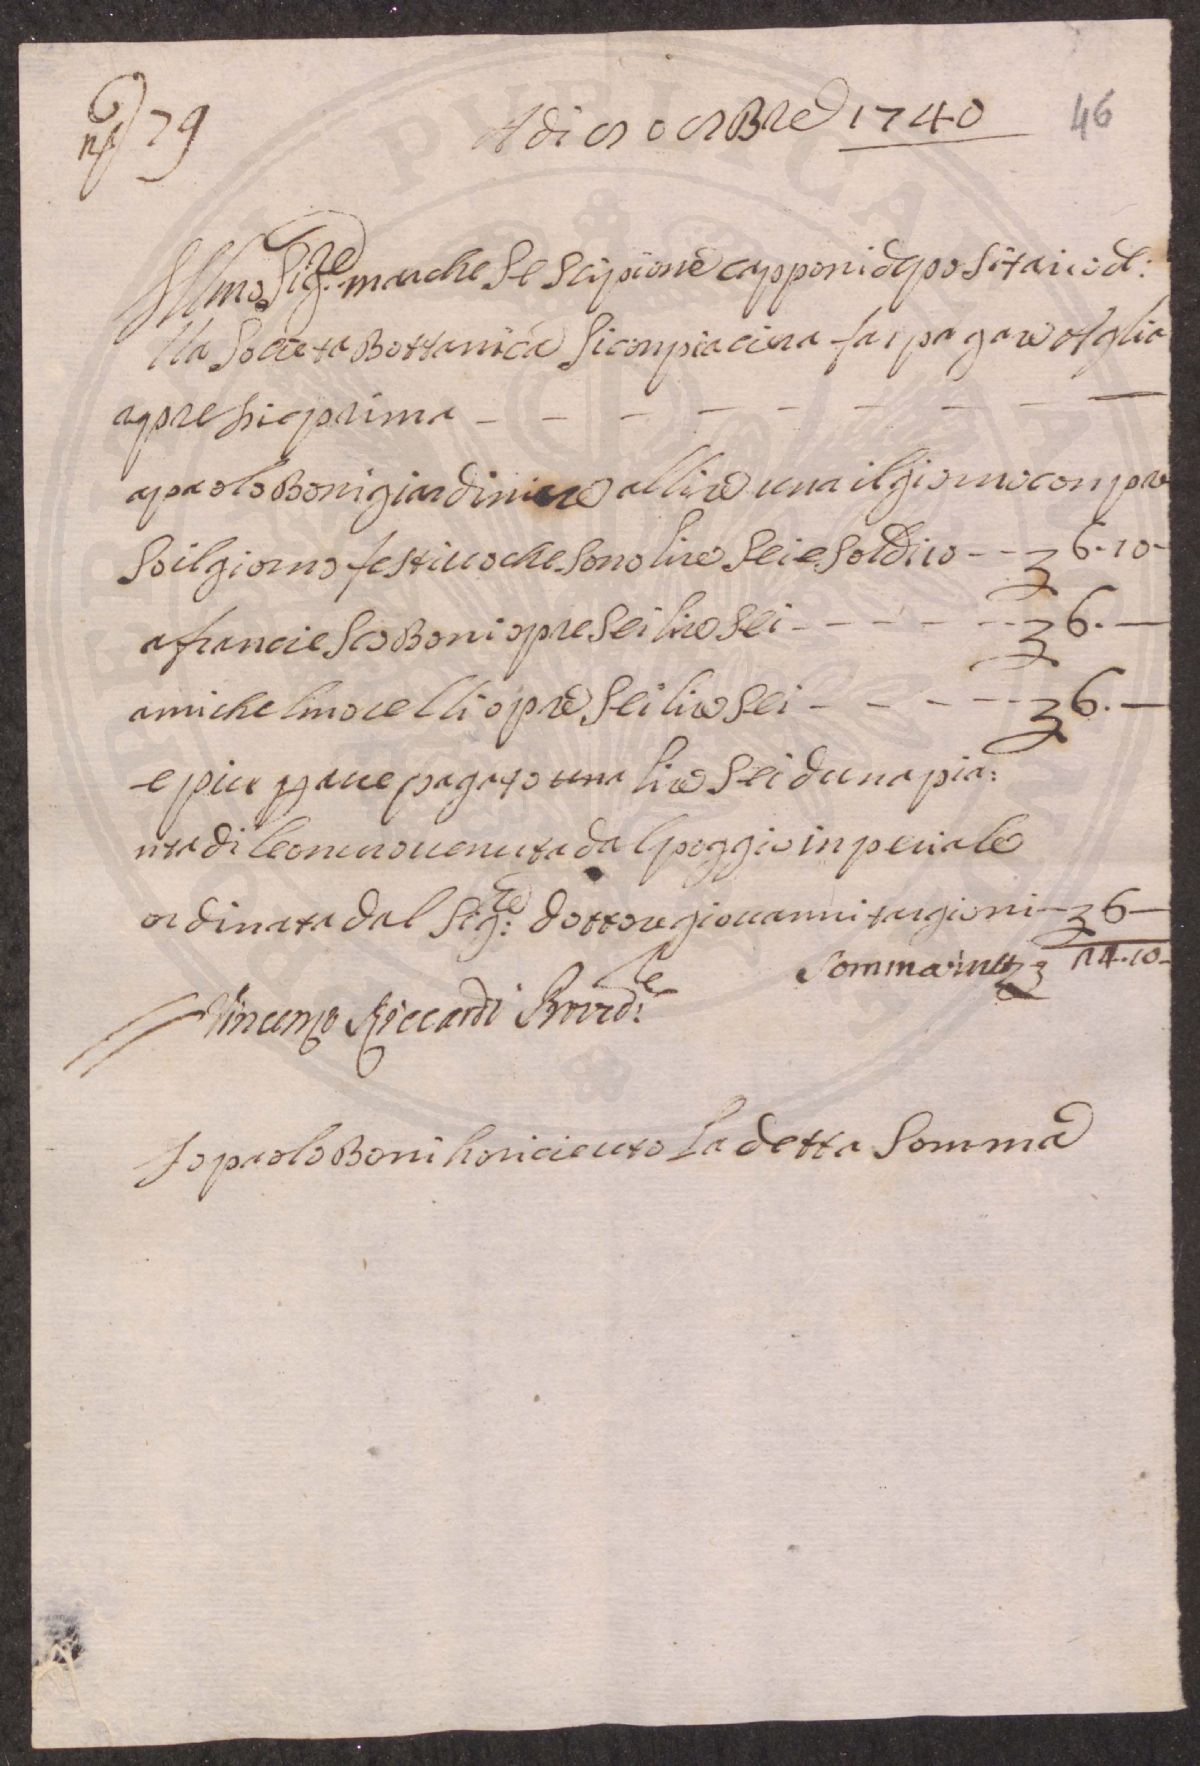 nº 79
Adi 9 o 9Bre 1740
46
Illmo Sig:re marchese Scipione capponi depositario de:
lla Società Bottanica Si conpiacierà far pagare Aglia
appresso in prima
a paolo Boni giardiniere a llire una il giorno conpre
so il giorno festivo che sono lire Sei e Soldi 10 6. 10
a franciesco Boni opre Sei lire Sei 6. —
a michel inocelli opre Sei lire Sei 6. —
e piu pagato lire Sei d una pia:
nta di leonuro venuta da l poggio inperiale
ordinata dal Sig:re dottore giovanni targioni 6 —
Somma 14. 10
Vincenzo Riccardi Provvd:e
Io paolo Boni ho riceuto La detta Somma